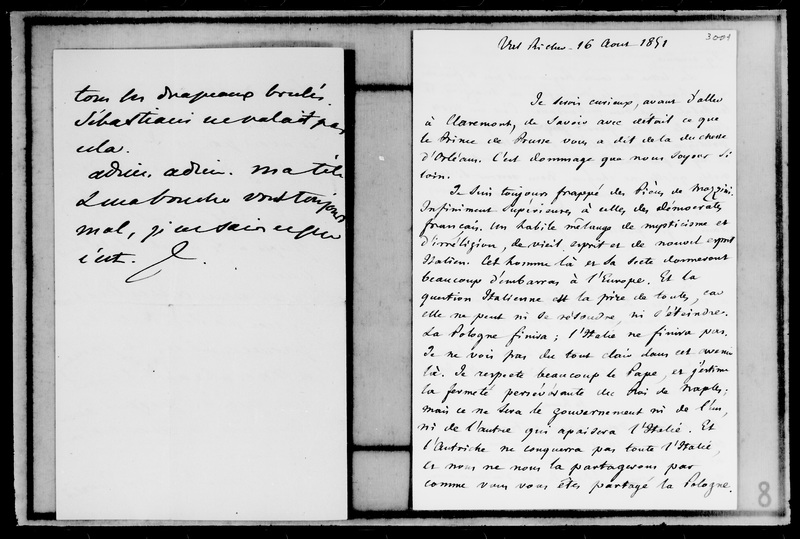 tous les drapeaux brulés.
Sébastiani ne valait pas
cela.
adieu. adieu. ma tête
& ma bouche vont toujours
mal, je ne sais ce que
c'est.
3001
Val Richer - 16 Aout 1851
Je serois curieux, avant d'aller
à Claremont, de savoir avec détail ce que
le Prince de Prusse vous a dit de la duchesse
d'Orléans. C'est dommage que nous soyons si
loin.
Je suis toujours frappé des Pièces de Mazzini.
Infiniment supérieures à celles des démocrates
français. Un habile mélange de mysticisme et
d'irréligion, de vieil esprit et de nouvel esprit
Italien. Cet homme là et sa secte donneront
beaucoup d'embarras à l'Europe. Et la
question Italienne est la pire de toutes, car
elle ne peut ni se résoudre, ni s'éteindre.
La Pologne finira ; l'Italie ne finira pas.
Je ne vois pas du tout clair dans cet avenir
là. Je respecte beaucoup le Pape, et j'estime
la fermeté persévérante du Roi de Naples ;
mais ce ne sera le gouvernement ni de l'un,
ni de l'autre qui apaisera l'Italie. Et
l'Autriche ne conquerra pas toute l'Italie,
et nous ne nous la partagerons pas
comme vous vous êtes partagé la Pologne.
8